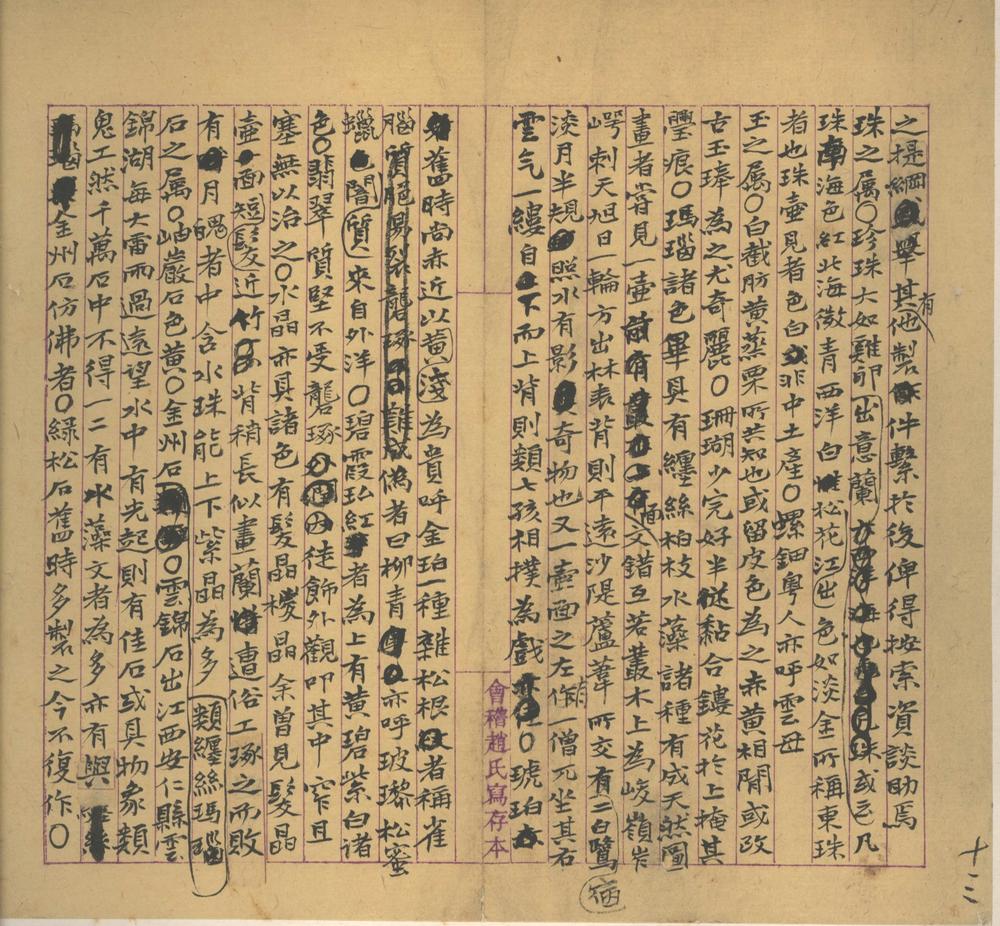 之提綱畢其他有製件繫於後俾得按索資談助焉
珠之屬〇珍珠大如雞卵出意蘭珠或云凡
珠南海色紅北海微青西洋白松花江出色如淡金所稱東珠
者也珠壺見者色白或非中土產〇螺鈿粵人亦呼雲母
玉之屬〇白截肪黃蒸栗所共知也或留皮色為之赤黃相間或改
古玉琫為之尤奇麗〇珊瑚少完好半從黏合鏤花於上掩其
璺痕〇瑪瑙諸色畢具有纏絲柏枝水藻諸種有成天然圖
畫者嘗見一壺面交錯互若叢木上為峻嶺岝
崿刺天旭日一輪方出林表背則平遠沙隄蘆葦所交有二白鷺
淡月半規照水有影奇物也又一壺面之左有一僧兀坐其右
雲气一縷自下而上背則類七孩相撲為戲〇琥珀
舊時尚赤近以黃淺為貴呼金珀一種雜松根者稱雀
腦質脆易裂礱琢難成偽者曰柳青亦呼玻瓈松蜜
蠟色闇質來自外洋〇碧霞玜紅者為上有黃碧紫白諸
色〇翡翠質堅不受礱琢因徒飾外觀叩其中窄且
塞無以治之〇水晶亦具諸色有髮晶椶晶余曾見髮晶
壺面短髮近竹背稍長似畫蘭遭俗工琢之而敗
有月魄者中含水珠能上下紫晶為多類纏絲瑪瑙
石之屬〇岫巖石色黃〇金州石〇雲錦石出江西安仁縣雲
錦湖每大雷雨過遠望水中有光起則有佳石或具物象類
鬼工然千萬石中不得一二有水藻文者為多亦有與
金州石仿佛者〇綠松石舊時多製之今不復作〇
會稽趙氏寫存本
十三